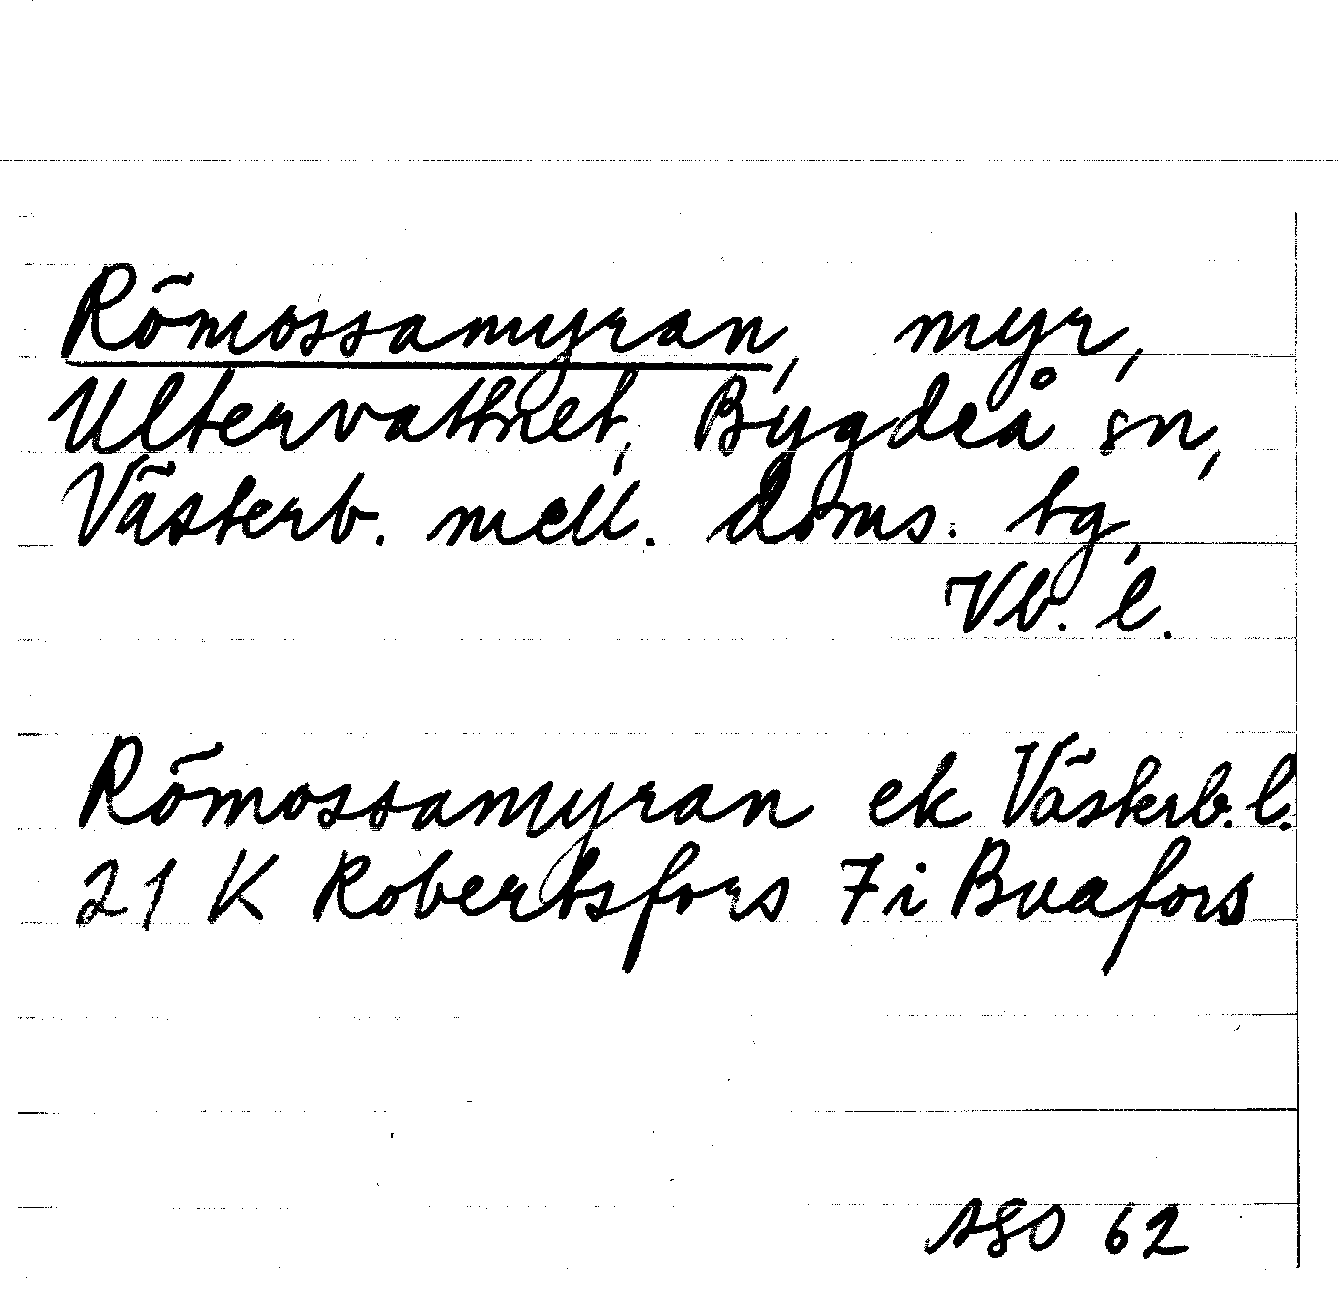 Römossamyran, myr,
Ultervattnet, Bygdeå sn,
Västerb. mell. doms. tg,
Vb. l.
Römossamyran ek Västerb. l.
21 K Robertsfors 7 i Bvafors
ASO 62